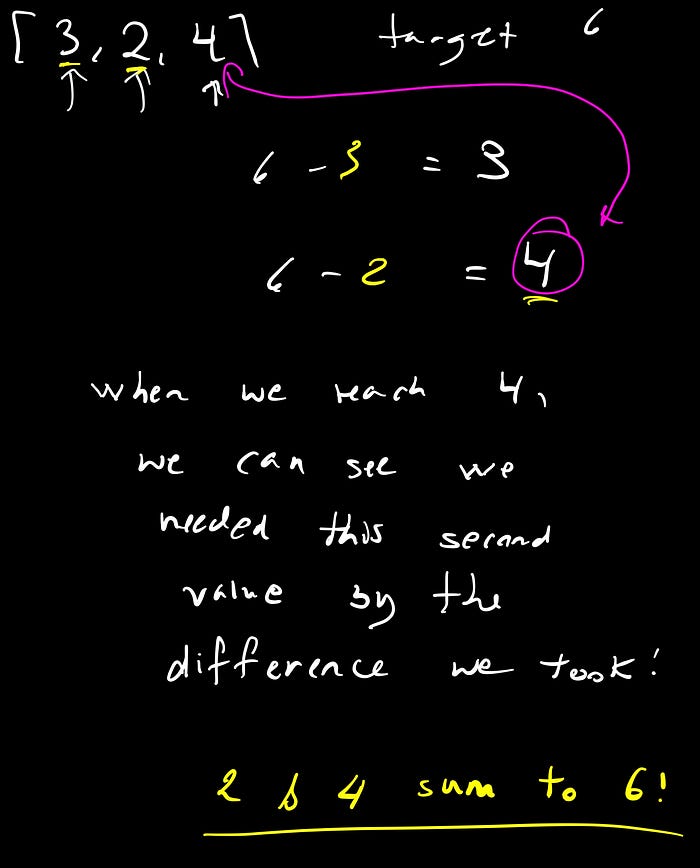 [3, 2, 4] target 6
6 - 3 = 3
6 - 2 = 4
when we reach 4,
we can see we
needed this second
value by the
difference we took!
2 & 4 sum to 6!